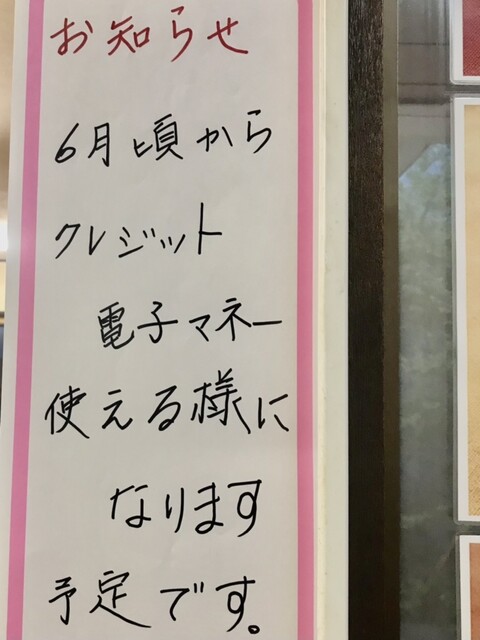 お知らせ
6月頃から
クレジット
電子マネー
使える様に
なります
予定です。